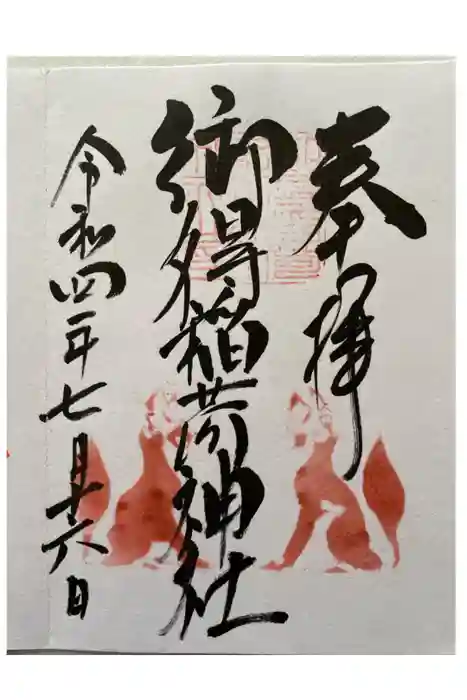 奉拝
御得稲荷神社
令和四年七月十六日